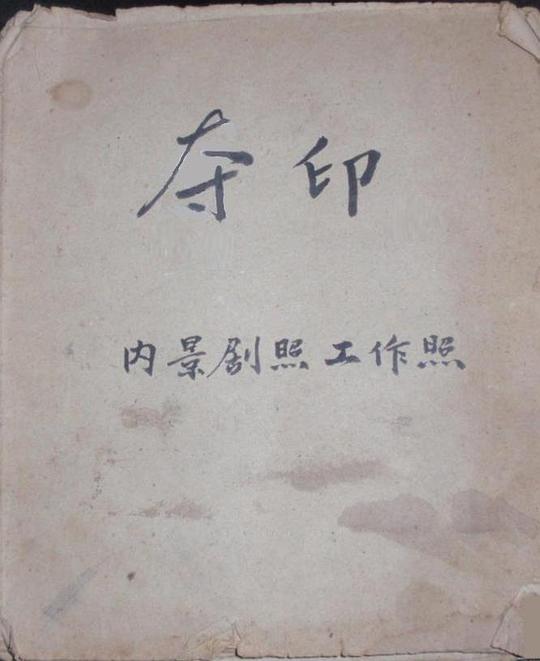 夺印
内景剧照 工作照